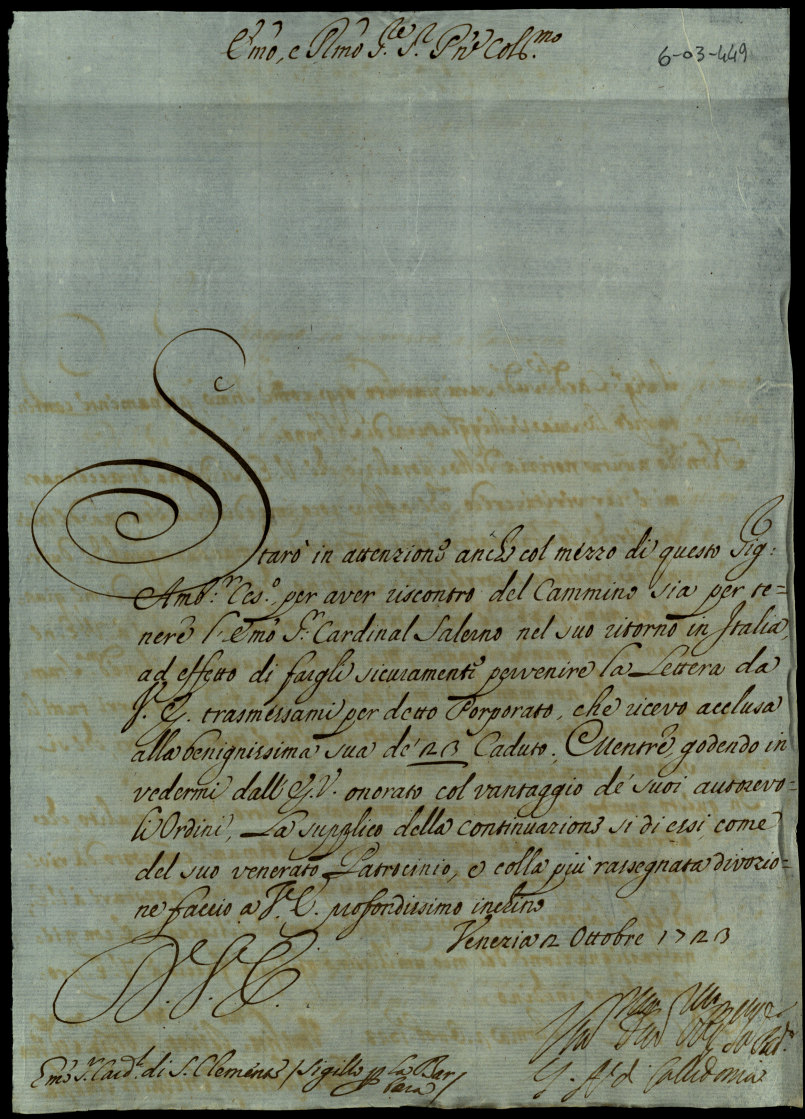 Emo, e Rmo Sre Sr Pne Colb.mo
6-03-449
Starò in attenzione anche col mezzo di questo Sig:
Amb.r Ces.o per aver riscontro del Cammino sia per te=
nere l'Emo Sr Cardinal Salerno nel suo ritorno in Italia,
ad effetto di fargli sicuramente pervenire la Lettera da
V. E. trasmessami per detto Porporato, che ricevo acclusa
alla benignissima sua de' 23 Caduto. Mentre godendo in
vedermi dall'E.V. onorato col vantaggio de' suoi autorevo=
li Ordini, La supplico della continuazione sì di essi come
del suo venerato Patrocinio, e colla più rassegnata divozio=
ne faccio a V.E. profondissimo inchino
Venezia 2 Ottobre 1723
D. V. E.
Emo Sr Card.l di S. Clemente / Sigillo p la Bar
bara /